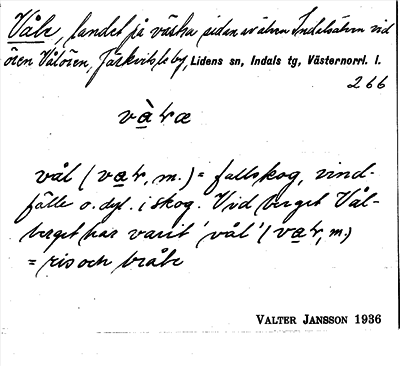 Våle, landet på västra sidan av älven Indalsälven vid
ören Vålören, Järkvitsle by, Lidens sn, Indals tg, Västernorrl. l.
266
và̱ɽæ
vål (va̱ɽ, m.) = fallskog, vind-
fälle o. dyl. i skog. Vid berget Vål-
berget har varit 'vål' (va̱ɽ, m.)
= ris och bråte
VALTER JANSSON 1936